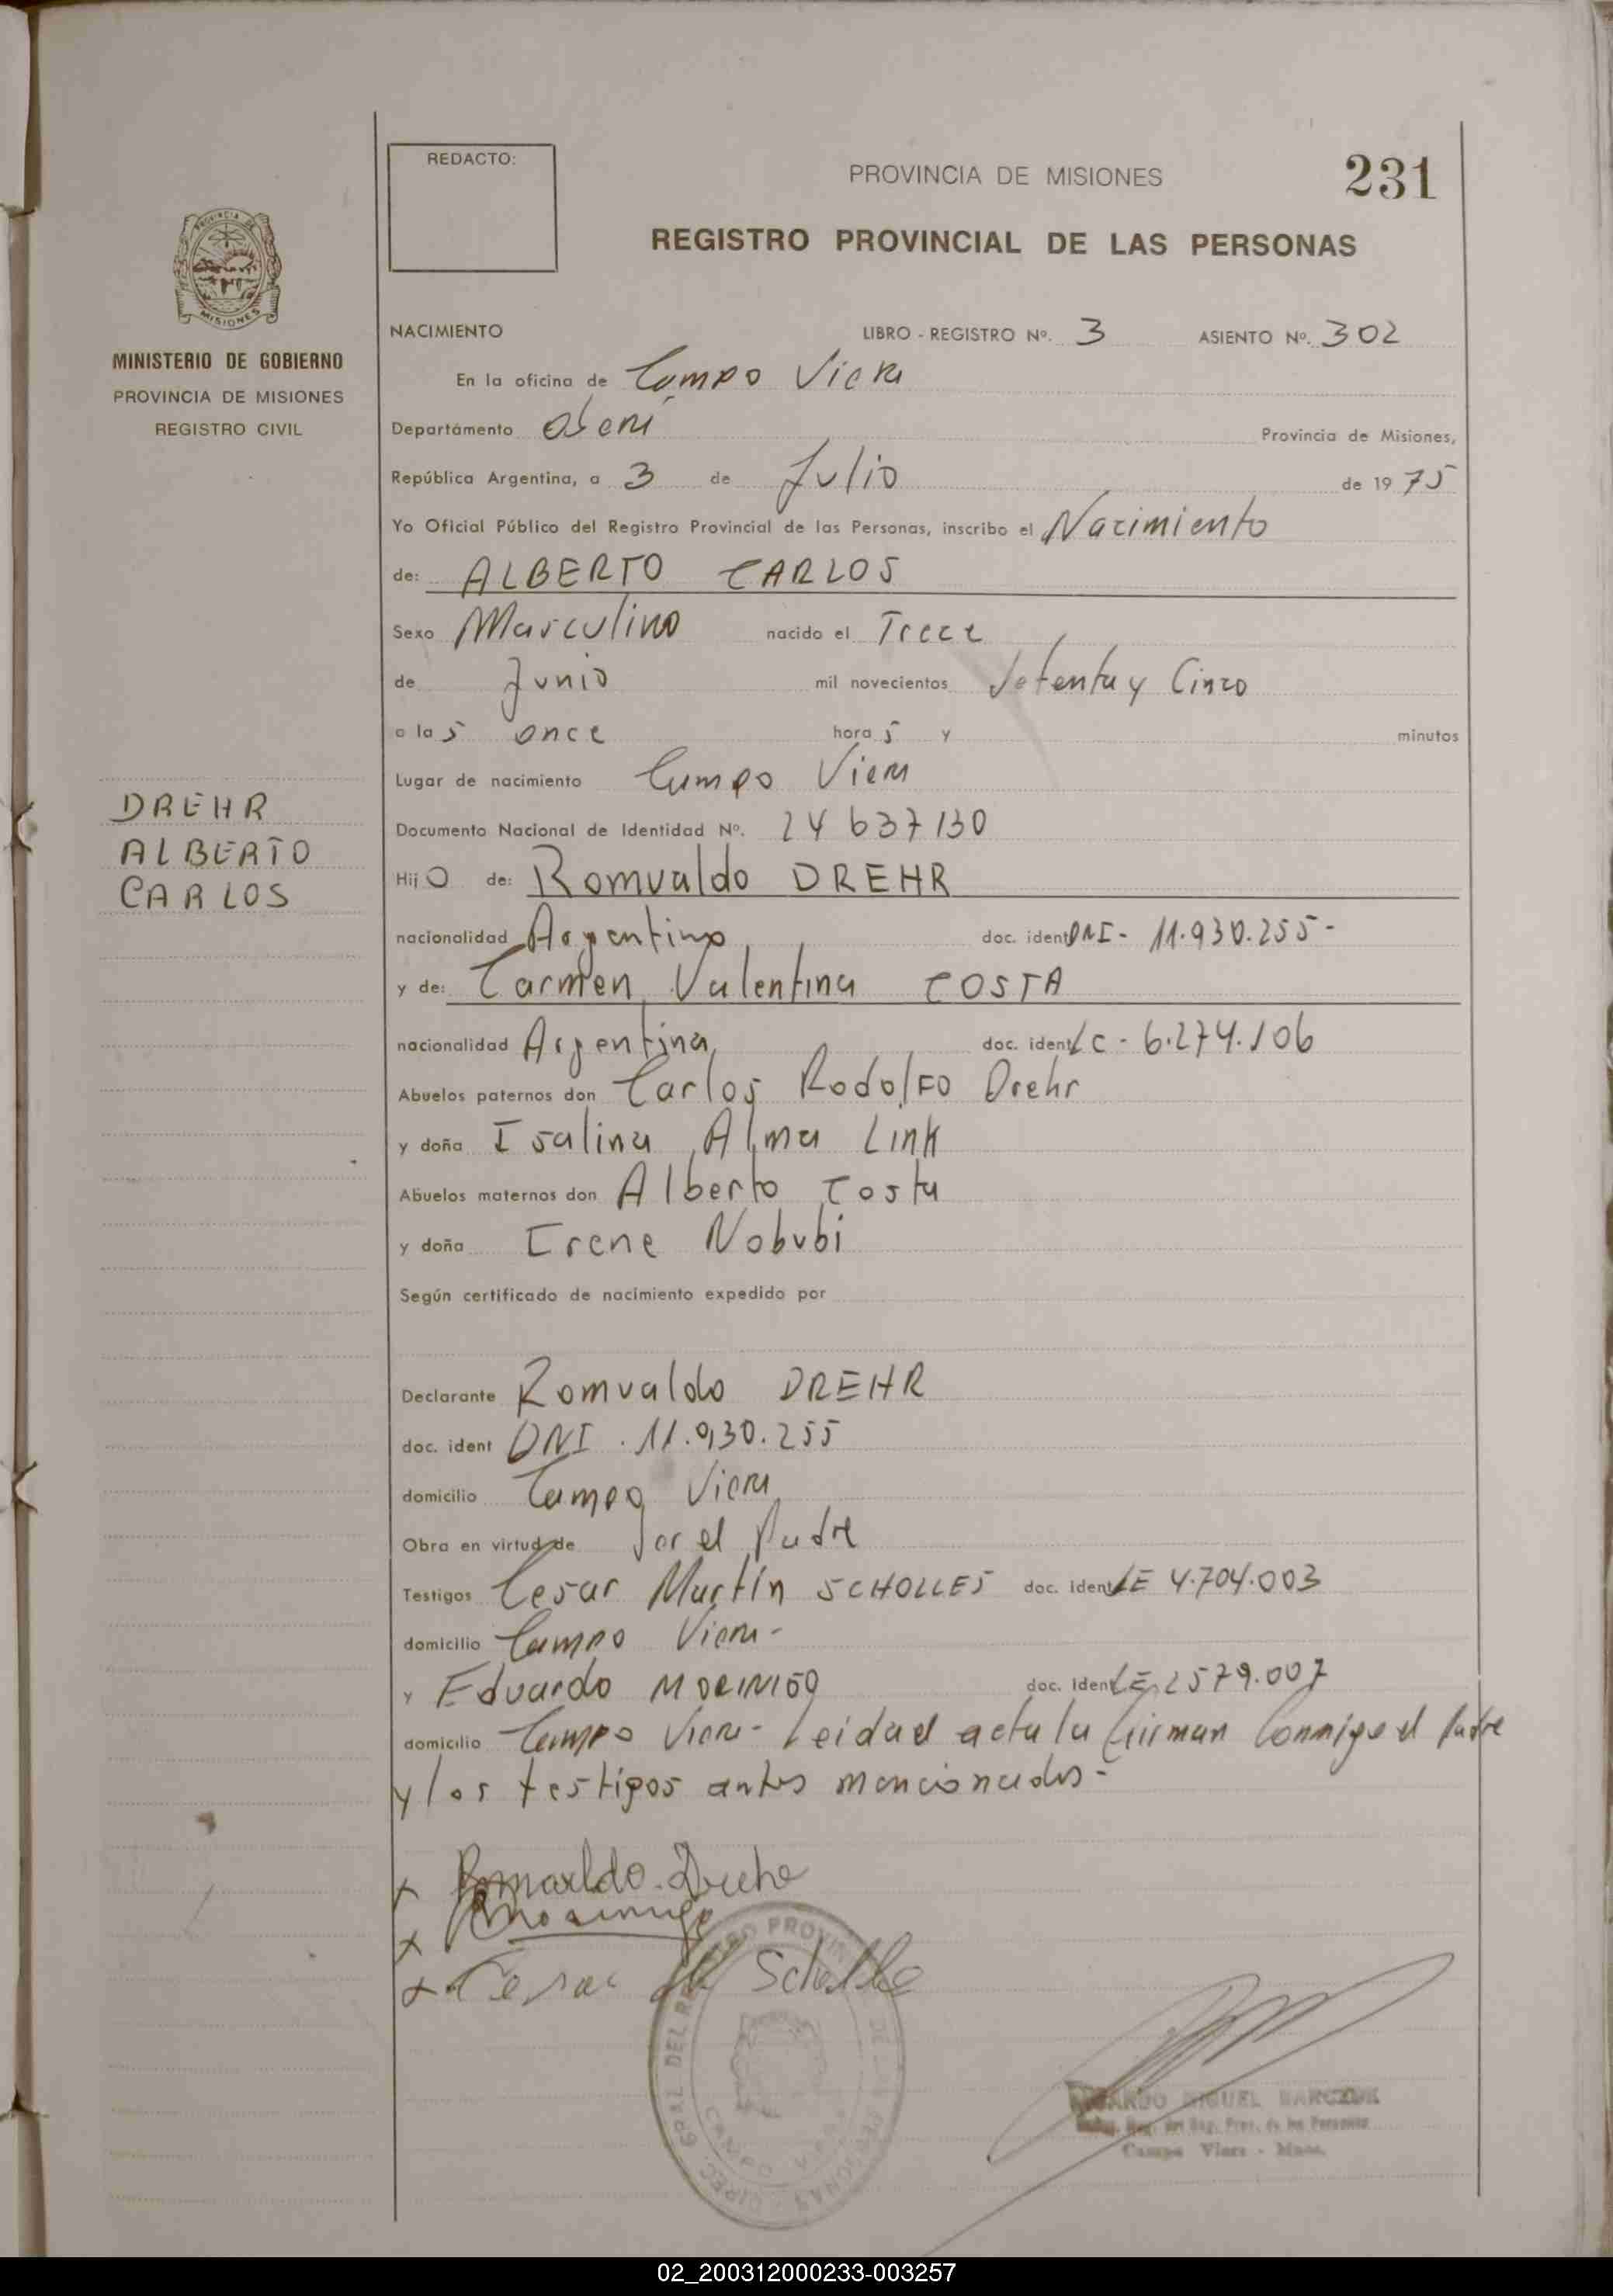 REDACTO:
PROVINCIA DE MISIONES
231
REGISTRO PROVINCIAL DE LAS PERSONAS
PROVINCIA DE MISIONES
MINISTERIO DE GOBIERNO
PROVINCIA DE MISIONES
REGISTRO CIVIL
NACIMIENTO LIBRO - REGISTRO Nº. 3 ASIENTO Nº. 302
En la oficina de Campo Viera
Departámento Oberá Provincia de Misiones,
República Argentina, a 3 de Julio de 1975
Yo Oficial Público del Registro Provincial de las Personas, inscribo el Nacimiento
de: ALBERTO CARLOS
Sexo Masculino nacido el Trece
de Junio mil novecientos Setenta y Cinco
a las once horas y minutos
Lugar de nacimiento Campo Viera
DREHR
ALBERTO
CARLOS
Documento Nacional de Identidad Nº. 24 637130
Hijo de: Romualdo DREHR
nacionalidad Argentino doc. ident DNI- 11.930.255-
y de: Carmen Valentina COSTA
nacionalidad Argentina doc. ident LC- 6.274.106
Abuelos paternos don Carlos Rodolfo Drehr
y doña Isalina Alma Link
Abuelos maternos don Alberto Costa
y doña Irene Nobubi
Según certificado de nacimiento expedido por
Declarante Romualdo DREHR
doc. ident DNI. 11.930.255
domicilio Campo Viera
Obra en virtud de Ser el Padre
Testigos Cesar Martín SCHOLLES doc. ident LE 4.704.003
domicilio Campo Viera-
y Eduardo doc. ident LE 2579.007
domicilio Campo Viera- Leida el acta la firman Conmigo el Padre
y los testigos antes mencionados-
x Romualdo Drehr
x
x Cesar M Scholle
DIREC. GRAL. DEL REGISTRO PROVINCIAL DE LAS PERSONAS
CAMPO VIERA
MIGUEL BARCZUK
Reg. Prov. de las Personas
Campo Viera - Mnes.
02_200312000233-003257